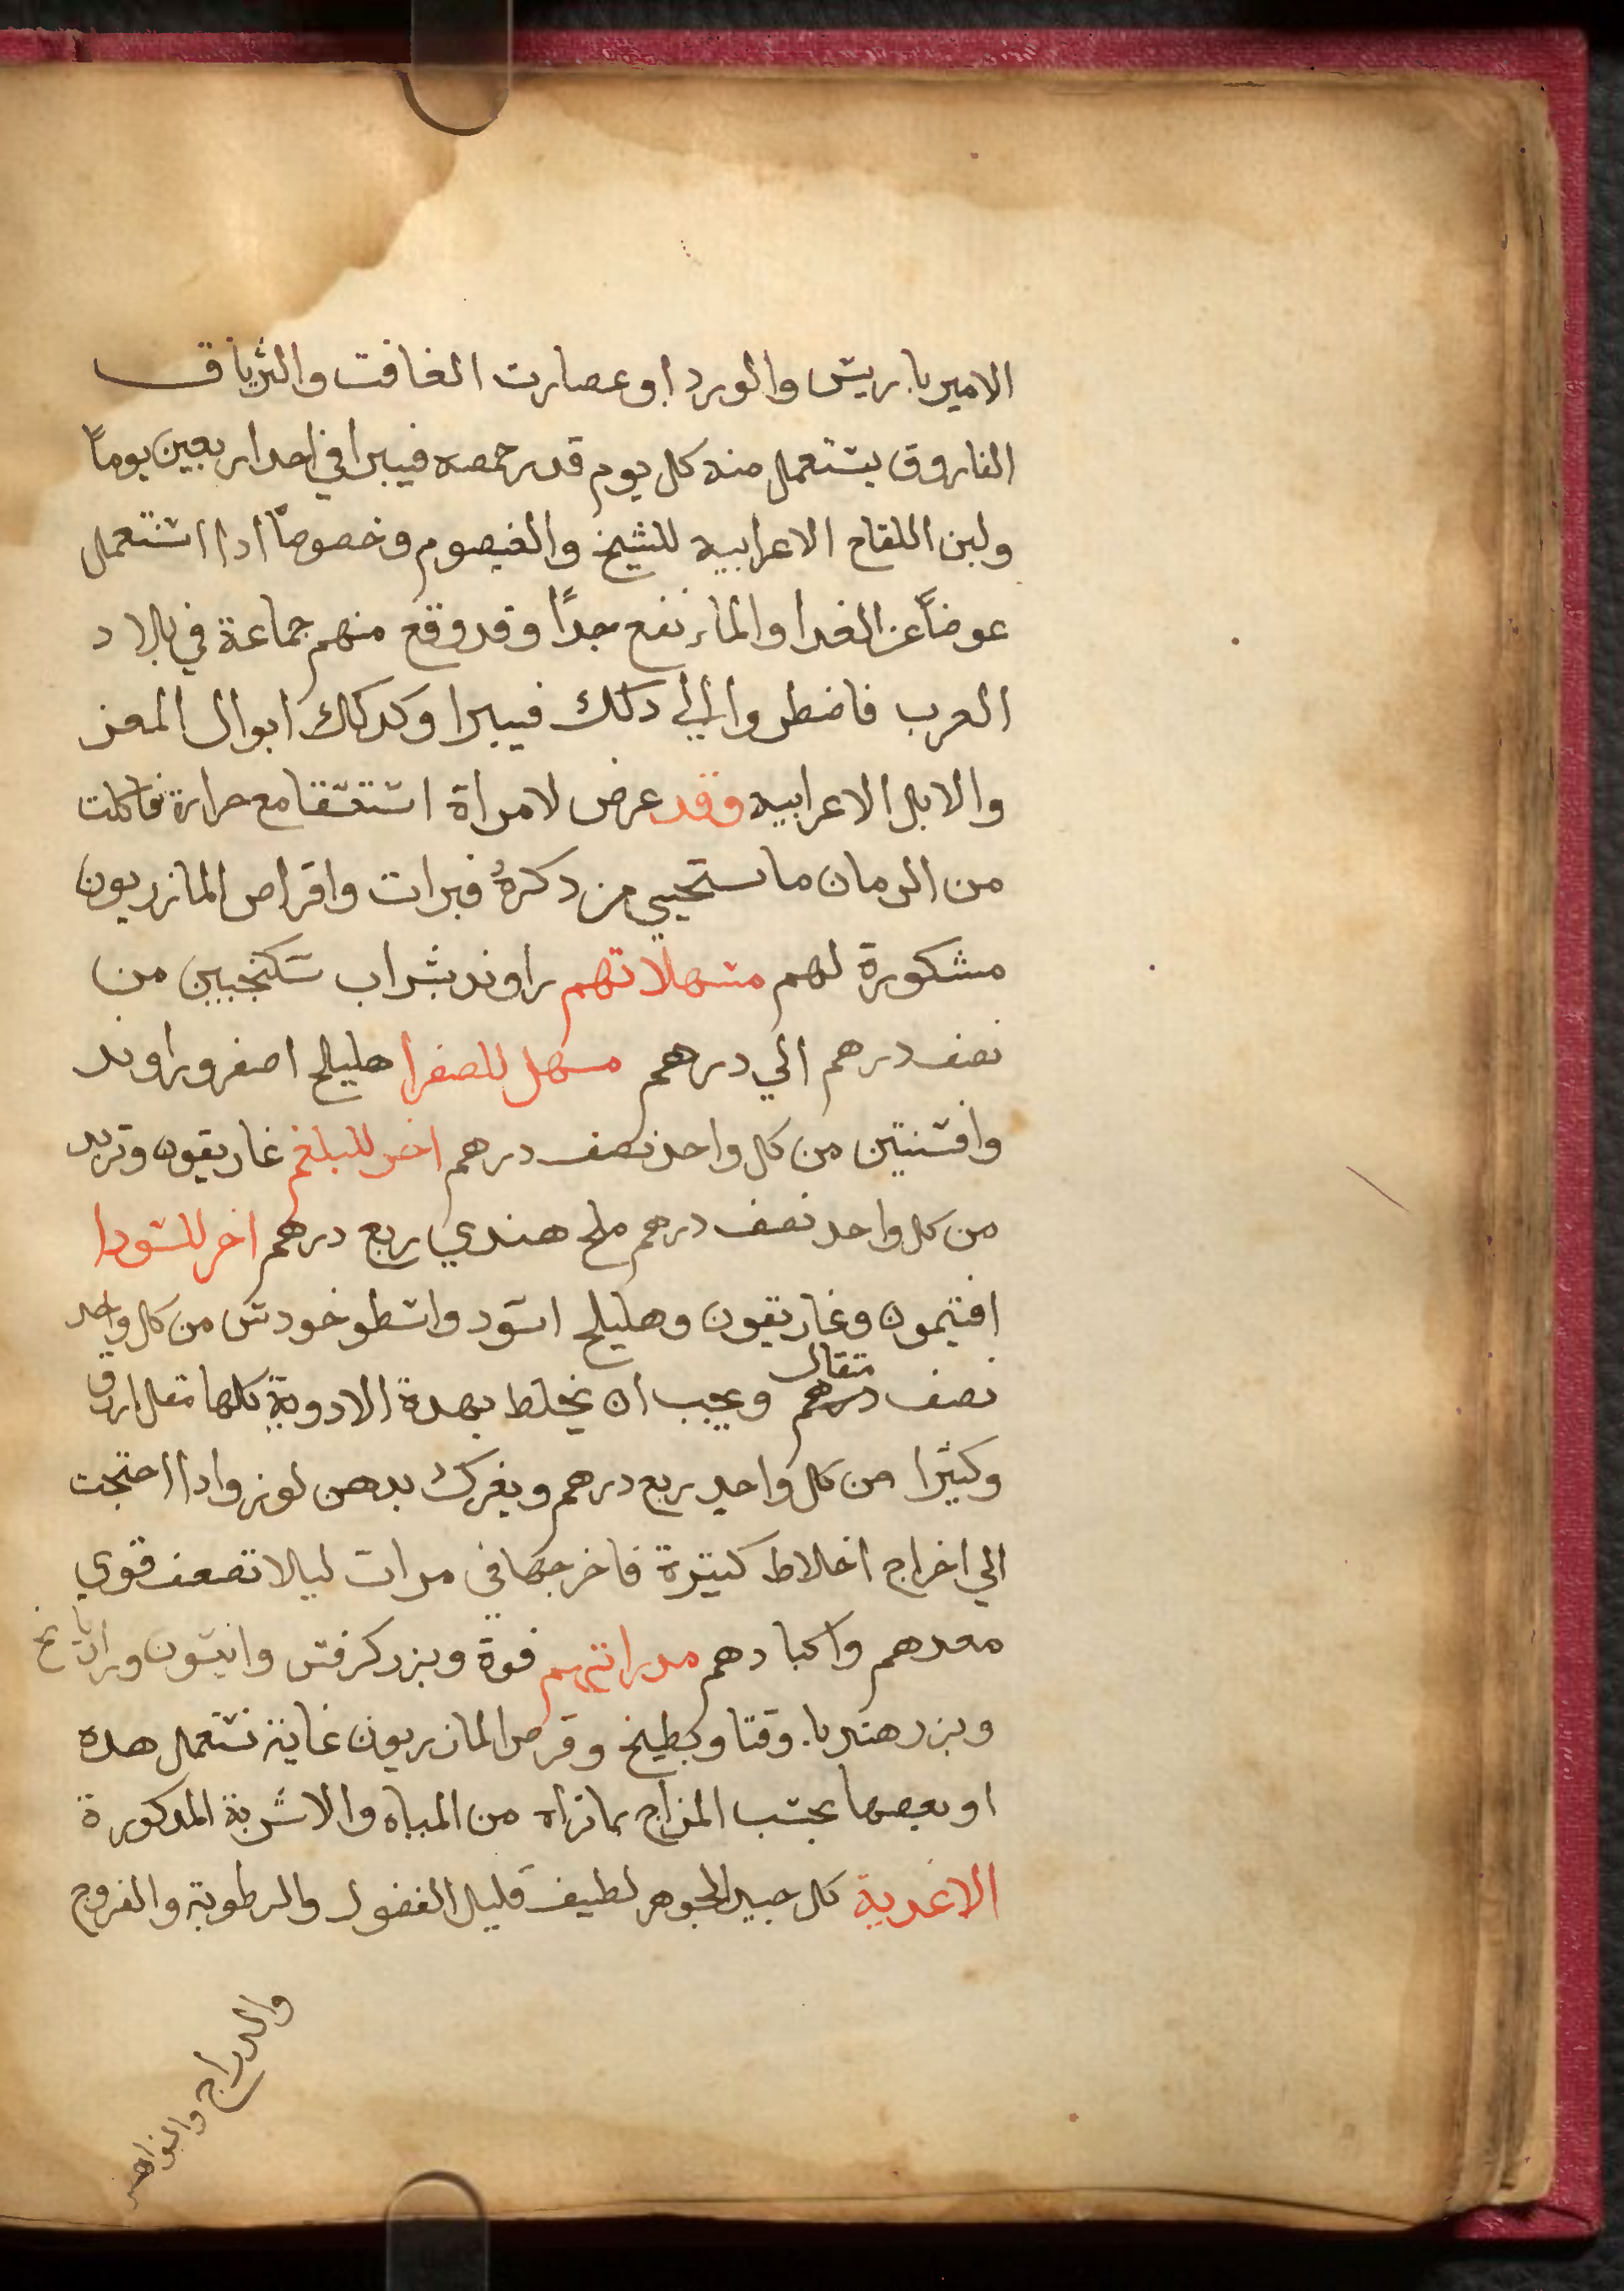 الاميرباريس والورد او عصارت الغافت والترياق
الفاروق يستعمل منه كل يوم قدر حمصه فيبرا في احدار بعين يوماً
ولبن اللقاح الاعرابيه للشيخ والقيصوم وخصوصاً ادا استعمل
عوضاً عن الغدا والماء نفع جداً وقد وقع منهم جماعة في بلاد
العرب فاضطروا الي دلك فيبرا وكدلك ابوال المعز
والابل الاعرابيه وقد عرض لامراة استسقا مع حرارة فاكلت
من الرمان ما يستحيي من دكرهُ فبرات واقراص المازريون
مشكورة لهم مسهلاتهم راوند بشراب سكنجبين من
نصف درهم الي درهم مسهل للصفرا هليلج اصفر وراوند
وافسنتين من كل واحد نصف درهم اخر للبلغم غاريقون وتربد
من كل واحد نصف درهم ملح هندي ربع درهم اخر للسودا
افتيمون وغاريقون وهليلج اسود واسطوخودس من كل واحد
نصف درهم متقال ويجب ان يخلط بهدة الادوية كلها مقل ازرق
وكثيرا من كل واحد ربع درهم ويفرك بدهن لوز وادا احتجت
الي اخراج اخلاط كتيرة فاخرجها في مرات ليلا تضعف قوي
معدهم واكبادهم مدراتهم فوة وبزر كرفس وانيسون ورازيانج
وبزر هندبا وقتا وبطيخ وقرص المازريون غاية تستعمل هده
او بعضها بحسب المزاج بما تراه من المياه والاشربة المدكورة
الاغدية كل جيد الجوهر لطيف قليل الفضول والرطوبة والفروج
والدراج والنواهض